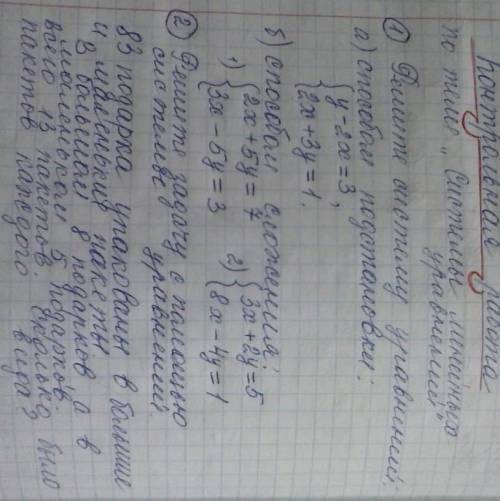 Контрольная работа
по теме „Системы линейных
уравнений"
① Решите систему уравнений:
а) способом подстановки:
{y - 2x = 3,
{2x + 3y = 1.
б) способом сложения:
1) {2x + 5y = 7 2) {3x + 2y = 5
{3x - 5y = 3 {8x - 4y = 1
② Решите задачу с помощью
системы уравнений
83 подарка упакованы в большие
и маленькие пакеты
В большом 8 подарков, а в
маленьком 5 подарков,
всего 13 пакетов. Сколько было
пакетов каждого вида?